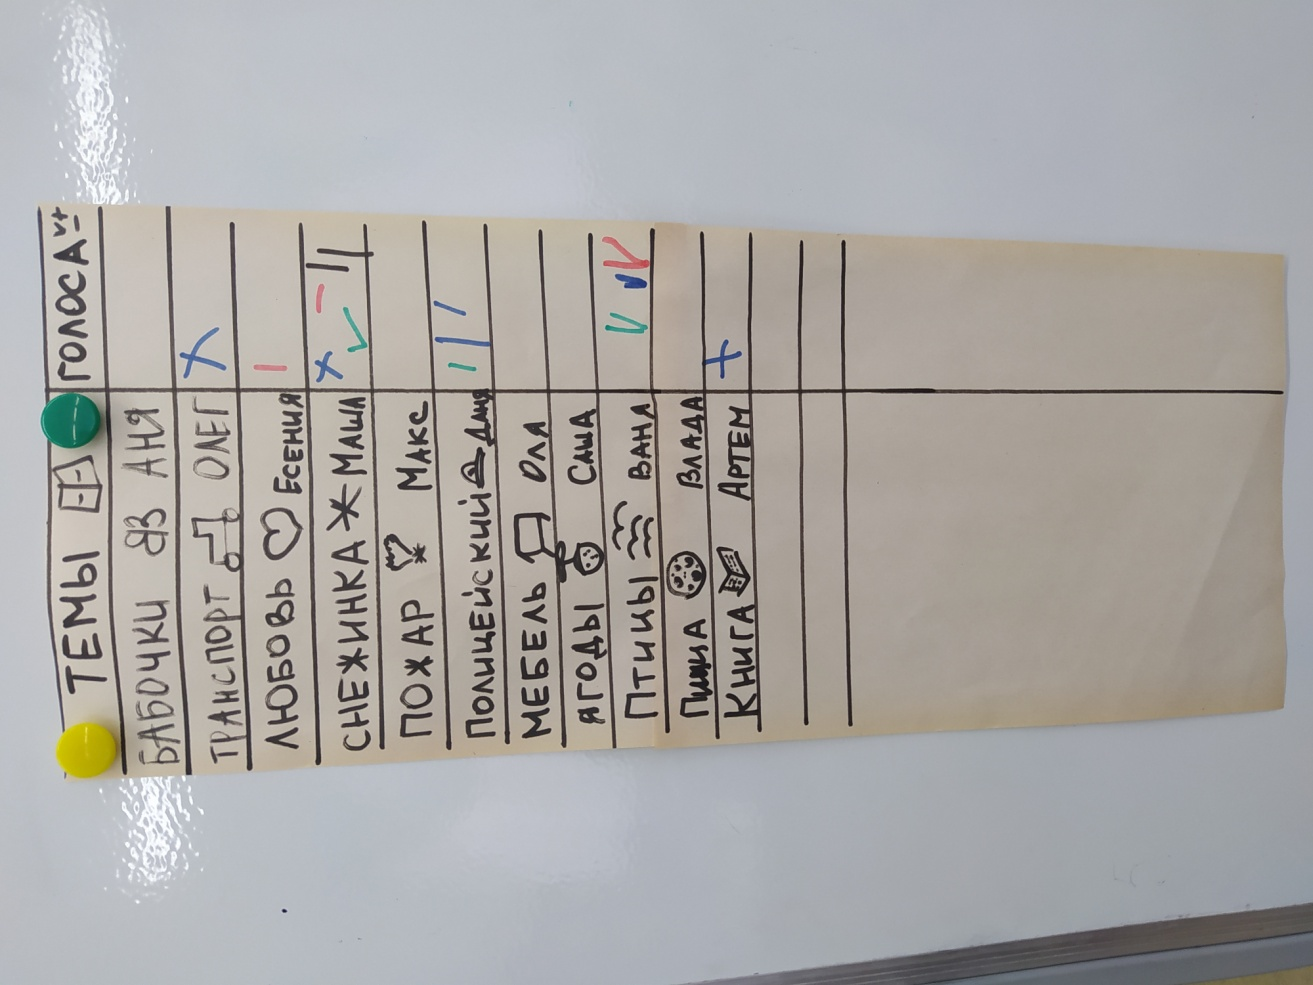 ТЕМЫ ГОЛОСА V+-
БАБОЧКИ АНЯ
ТРАНСПОРТ ОЛЕГ
ЛЮБОВЬ ЕСЕНИЯ
СНЕЖИНКА МАША
ПОЖАР МАКС
ПОЛИЦЕЙСКИЙ ДАНЯ
МЕБЕЛЬ ОЛЯ
ЯГОДЫ САША
ПТИЦЫ ВАНЯ
ПИЦЦА ВЛАДА
КНИГА АРТЕМ